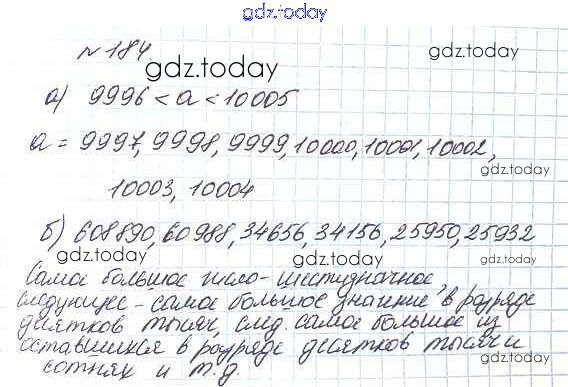 gdz.today
№ 184.
gdz.today
а) 9996 < а < 10005
gdz.today
а = 9997, 9998, 9999, 10000, 10001, 10002,
gdz.today
10003, 10004
б) 608890, 60988, 34656, 34156, 25950, 25932
gdz.today gdz.today
Самое большое число - шестизначное,
следующее - самое большое значение в разряде
десятков тысяч, след. самое большое из
оставшихся в разряде десятков тысяч и
gdz.today
сотнях и т.д.